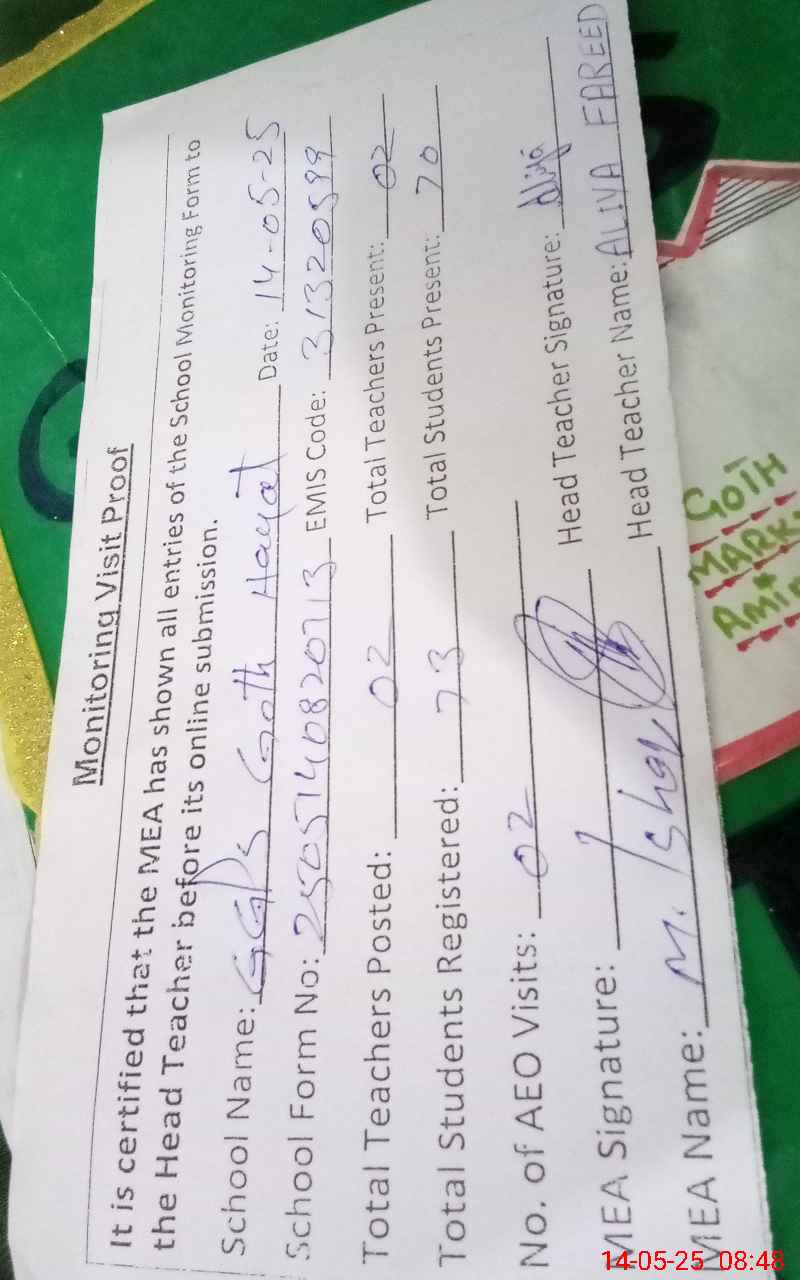 Monitoring Visit Proof
It is certified that the MEA has shown all entries of the School Monitoring Form to
the Head Teacher before its online submission.
School Name: GGPS Goth Hayat Date: 14-05-25
School Form No: 2505140820713 EMIS Code: 31320599
Total Teachers Posted: 02 Total Teachers Present: 02
Total Students Registered: 73 Total Students Present: 70
No. of AEO Visits: 02
MEA Signature: Head Teacher Signature: Aliya
MEA Name: M. Ishaq Head Teacher Name: ALIYA FAREED
GOTH
MARK
Ami
14-05-25 08:48